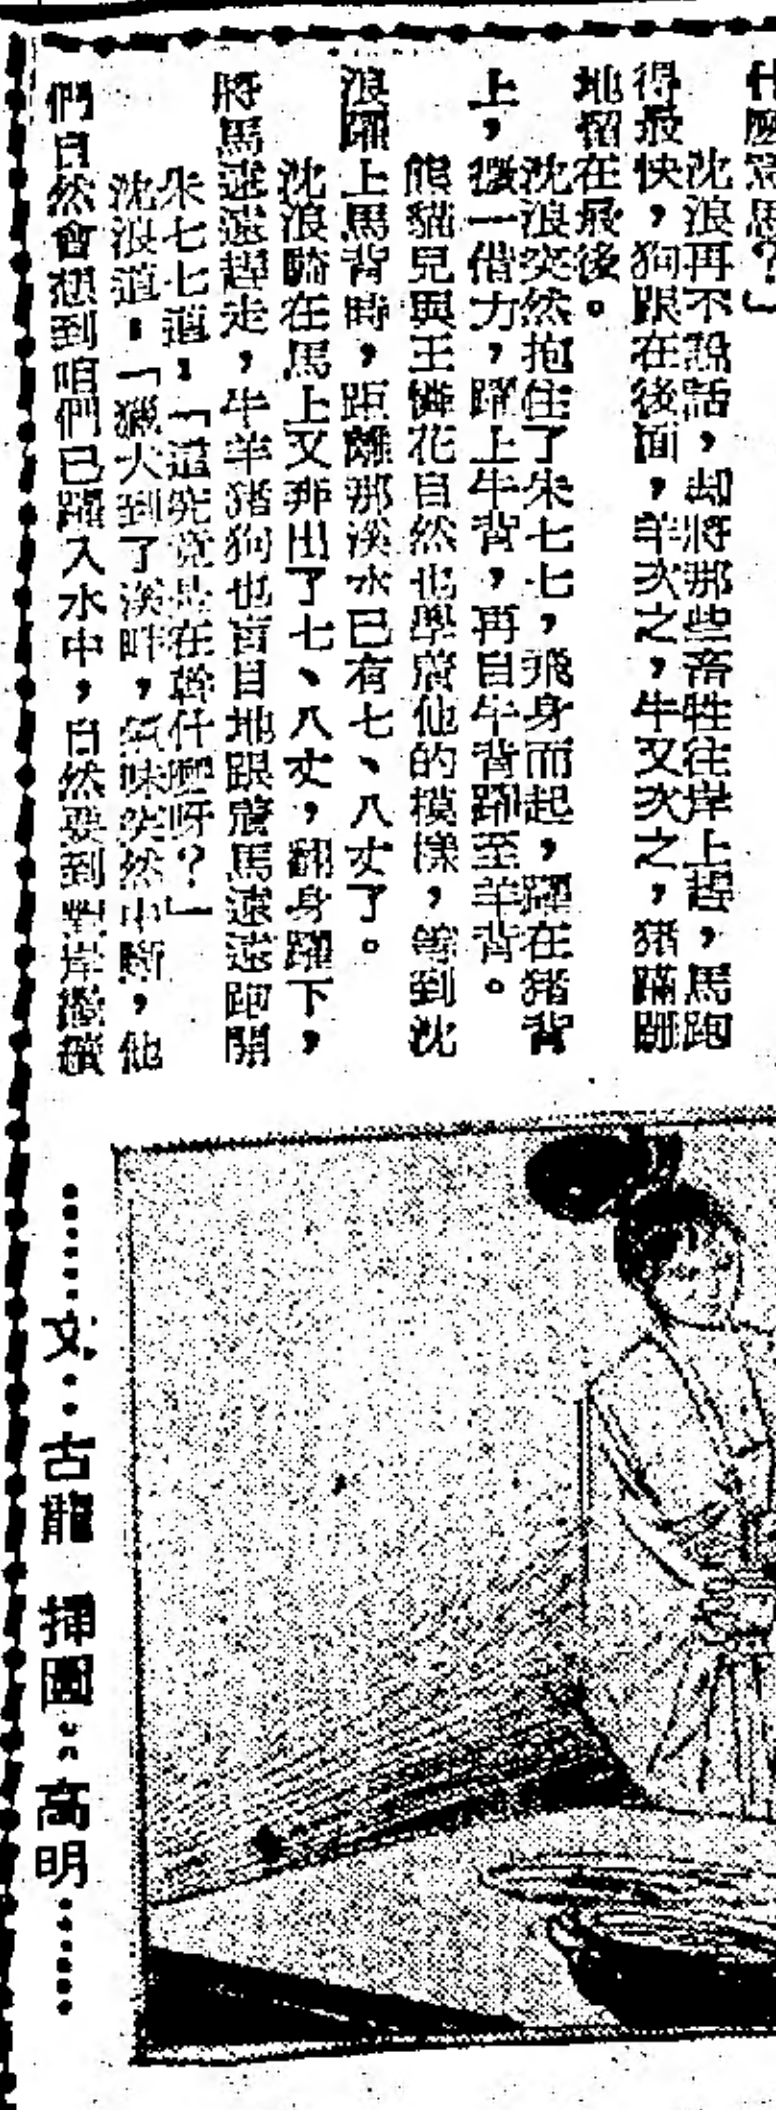 什麼笨馬？」
沈浪再不說話，却將那些畜牲往岸上趕，馬跑
得最快，狗跟在後面，羊次之，牛又次之，豬蹣跚
地留在最後。
沈浪突然抱住了朱七七，飛身而起，躍在豬背
上，微一借力，躍上牛背，再自牛背躍至羊背。
熊貓兒與王憐花自然也學着他的模樣，等到沈
浪躍上馬背時，距離那溪水已有七、八丈了。
沈浪騎在馬上又奔出了七、八丈，翻身躍下，
將馬遠遠趕走，牛羊猪狗也盲目地跟着馬遠遠跑開
朱七七道：「這究竟是在幹什麼呀？」
沈浪道：「獵犬到了溪畔，氣味突然中斷，他
們自然會想到咱們已躍入水中，自然要到對岸繼續
文：古龍 揷圖：高明